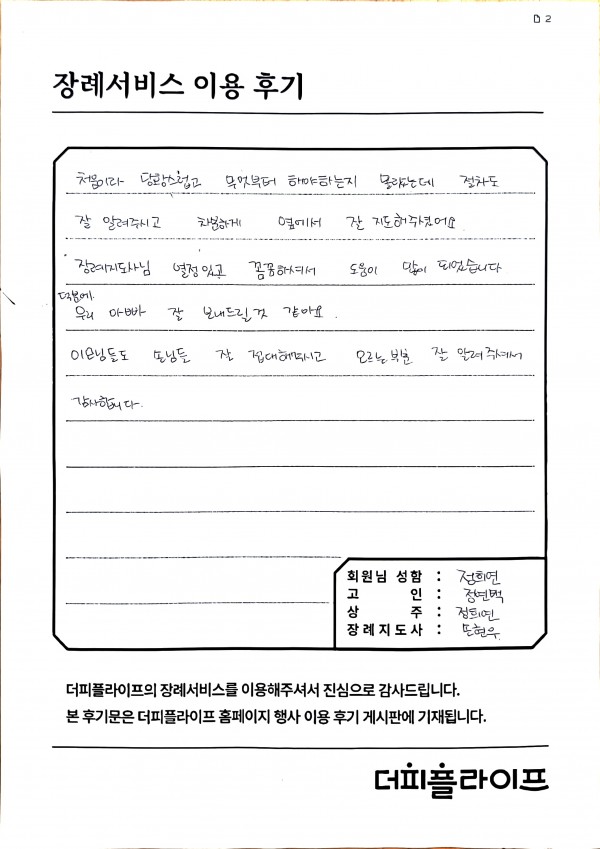 D 2
장례서비스 이용 후기
처음이라 당황스럽고 무엇부터 해야하는지 몰랐는데 절차도
잘 알려주시고 차분하게 옆에서 잘 지도해주셨어요
장례지도사님 열정있고 꼼꼼하셔서 도움이 많이 되었습니다
덕분에
우리 아빠 잘 보내드릴것 같아요.
이모님들도 손님들 잘 접대해주시고 모르는부분 잘 알려주셔서
감사합니다.
회원님 성함 : 정희연
고 인 : 정연백
상 주 : 정희연
장례지도사 : 현우
더피플라이프의 장례서비스를 이용해주셔서 진심으로 감사드립니다.
본 후기문은 더피플라이프 홈페이지 행사 이용 후기 게시판에 기재됩니다.
더피플라이프